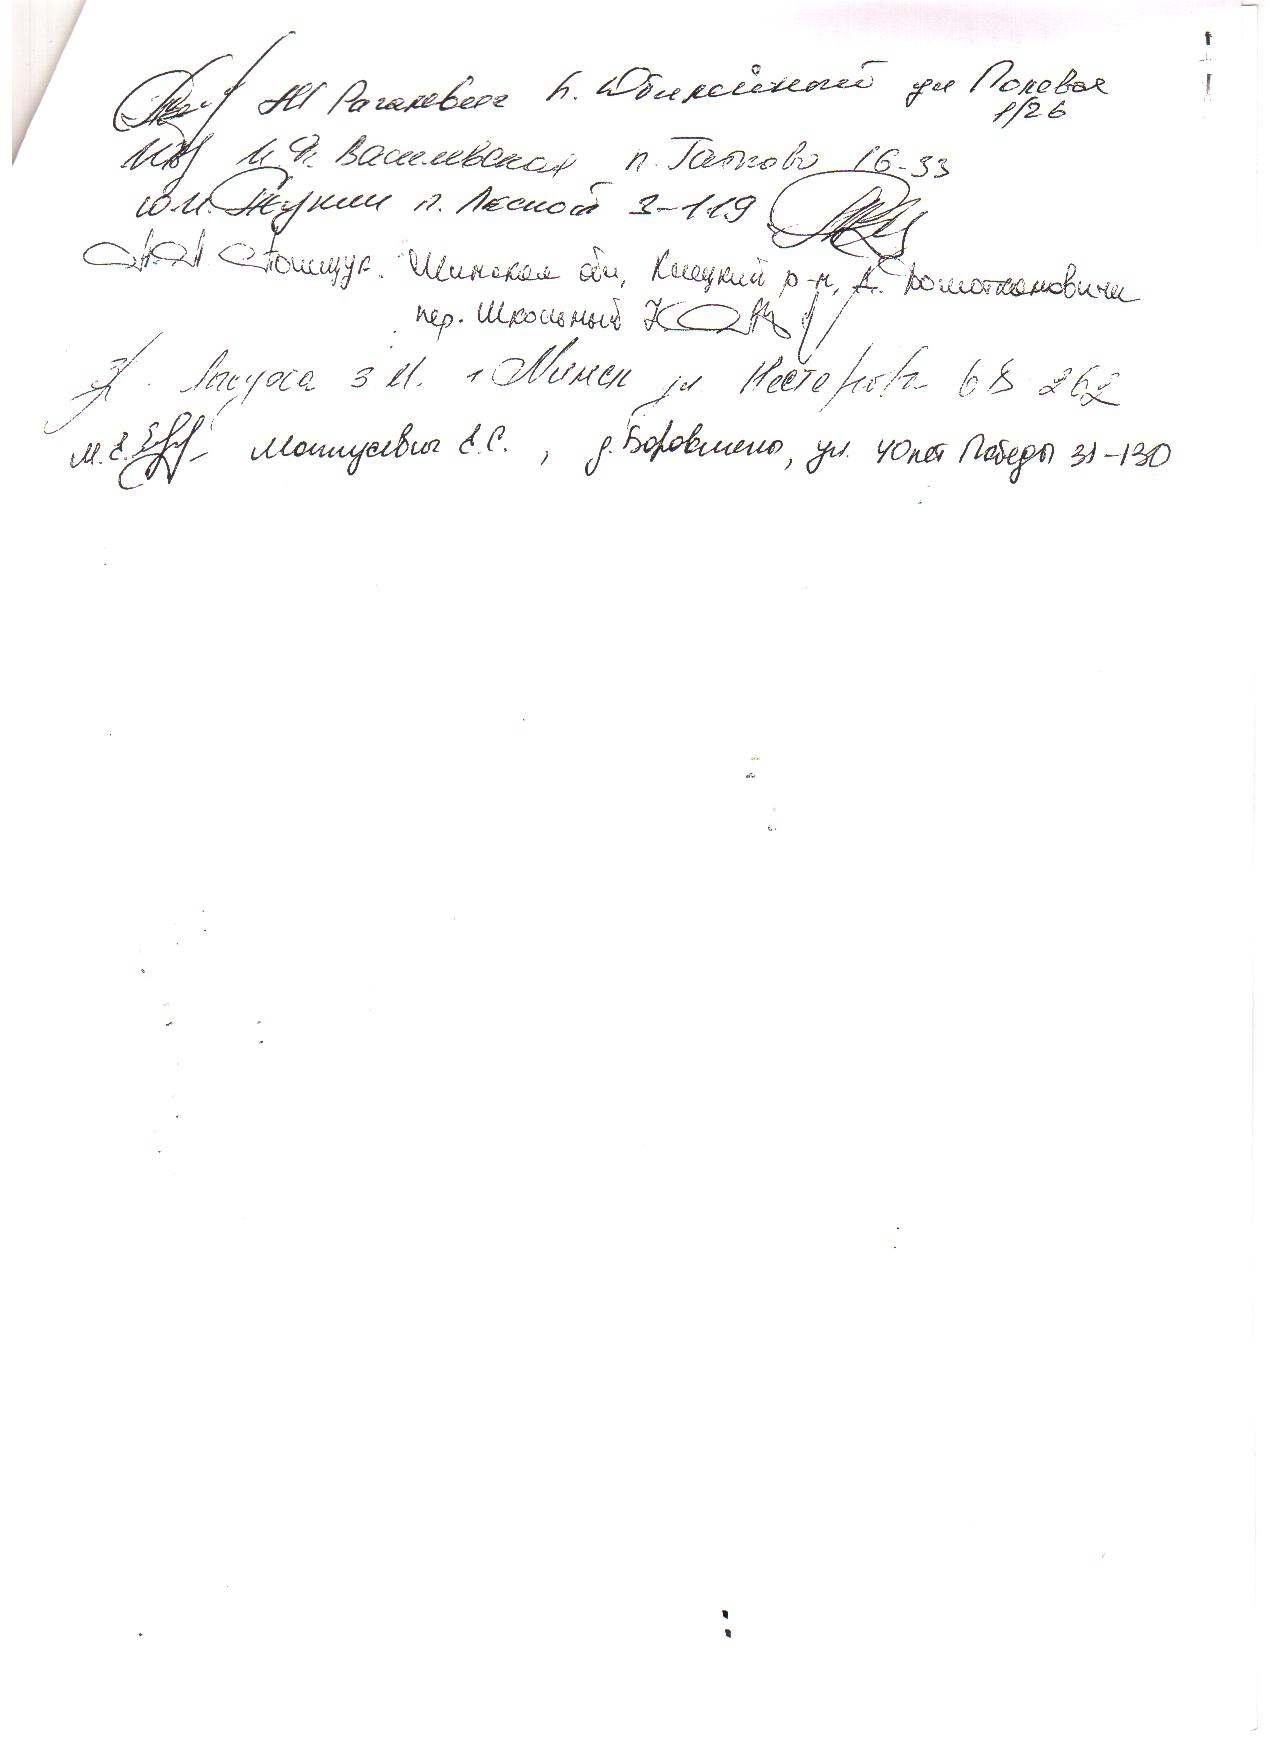 АИ Рагалевич п. Юбилейный ул Полевая
1/26
И.Ф. Василевская п. Гатово 16-33
Ю.И. Жукин п. Лесной 3-119
Полищук. Минская обл, Клецкий р-н, д. Домоткановичи
пер. Школьный
Ласуоса З И. г Минск ул Нестерова 68 262
М.Е. Матусевич Е.С. , д. Боровляны, ул. 40 лет Победы 31-130